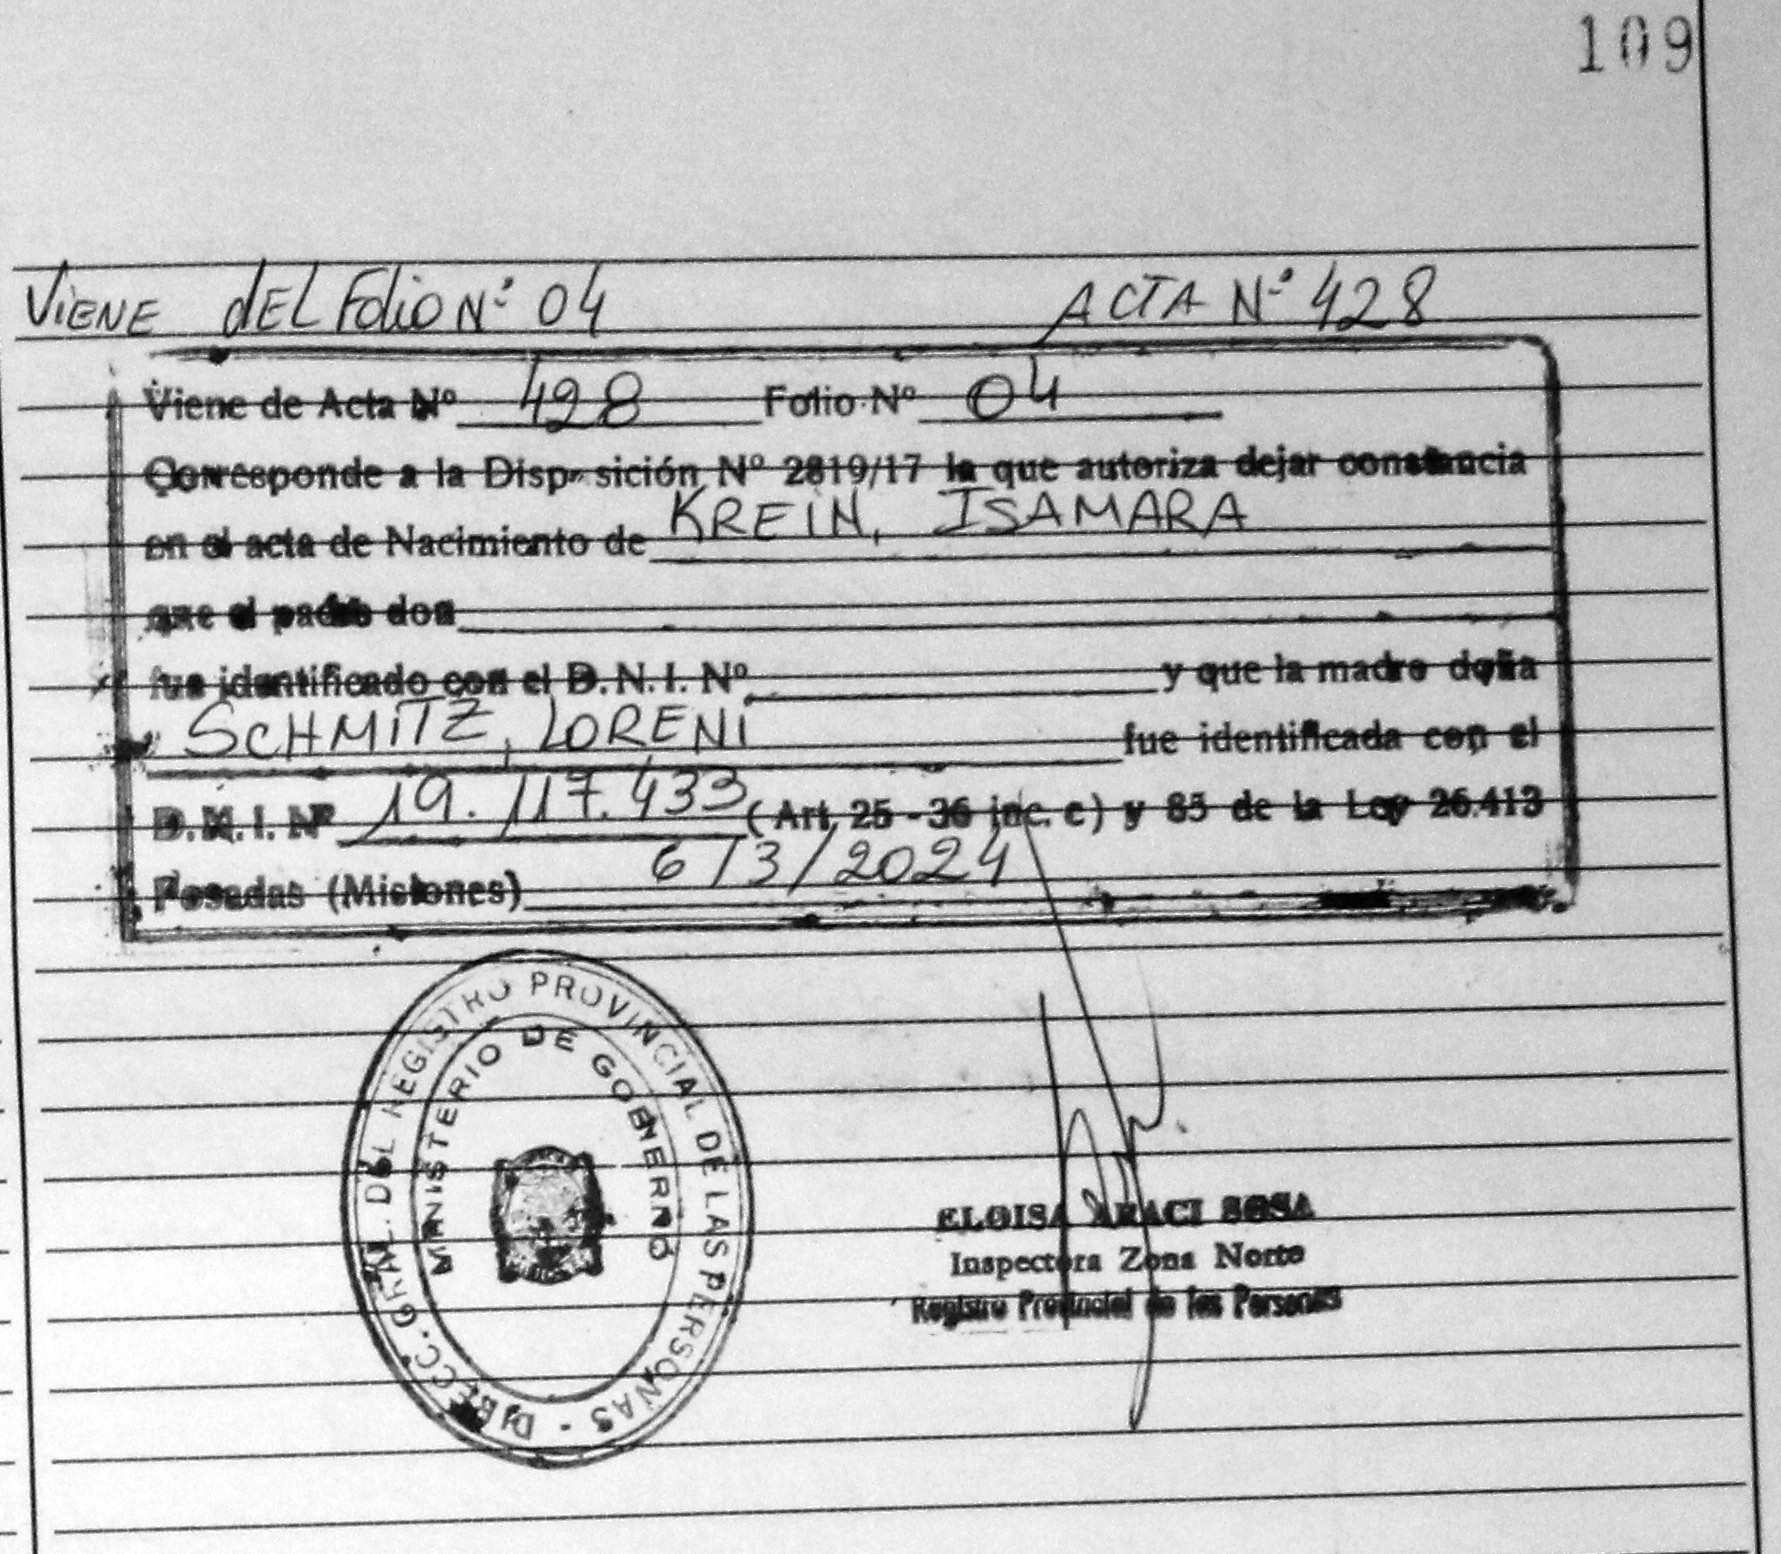 109
ViENE dEL FoLio Nº 04 ACTA Nº 428
Viene de Acta Nº 428 Folio Nº 04
Corresponde a la Disposición Nº 2819/17 la que autoriza dejar constancia
en el acta de Nacimiento de KREIN, ISAMARA
que el padre don
fue identificado con el D.N.I. Nº y que la madre doña
SCHMiTZ, LORENI fue identificada con el
D.N.I. Nº 19.117.433 (Art. 25 - 36 inc. c) y 85 de la Ley 26.413
Posadas (Misiones) 6/3/2024
DIRECC. GRAL. DEL REGISTRO PROVINCIAL DE LAS PERSONAS -
MINISTERIO DE GOBIERNO
ELOISA ARACI SOSA
Inspectora Zona Norte
Registro Provincial de las Personas